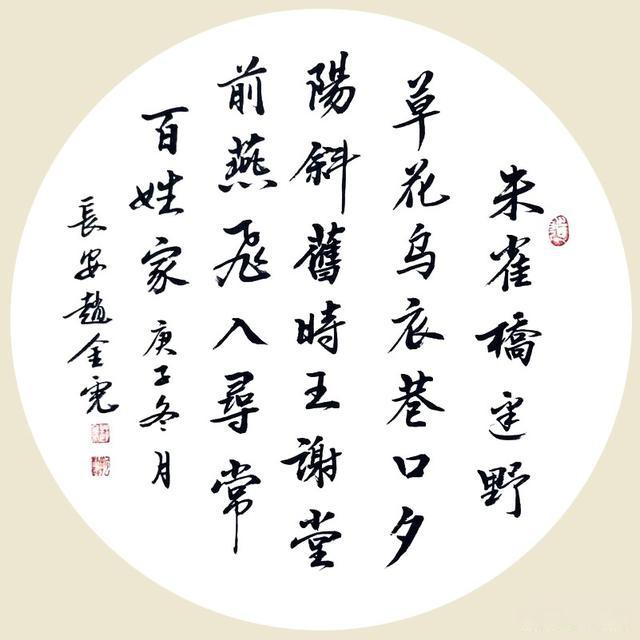 朱雀橋邊野
草花烏衣巷口夕
陽斜舊時王謝堂
前燕飛入尋常
百姓家庚子冬月
長安趙金